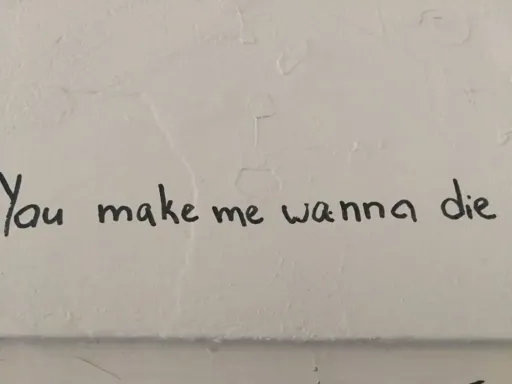 You make me wanna die